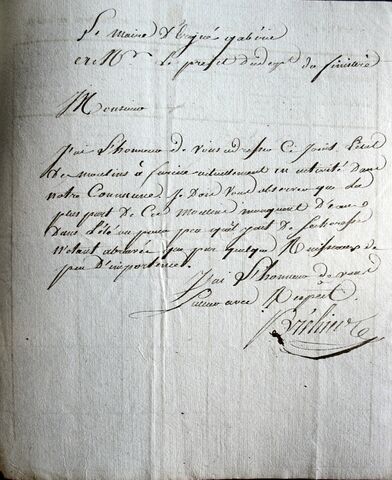 Le maire d'Ergué gabéric
a Mr Le prefet du dept du finistère
Monsieur
J'ai L'honneur de vous adresser Ci Joint L'etat
De moulins à farine actuellement en activité Dans
notre Commune. Je Dois vous observer que La
plus part de Ces moulins manquent d'eau
Dans L'été un peu qu'il fait De Secheresse
N'etant abreuvé que par quelque Ruisseaux de
peu D'importance.
J'ai L'honneur de vous
Saluer avec Respect.